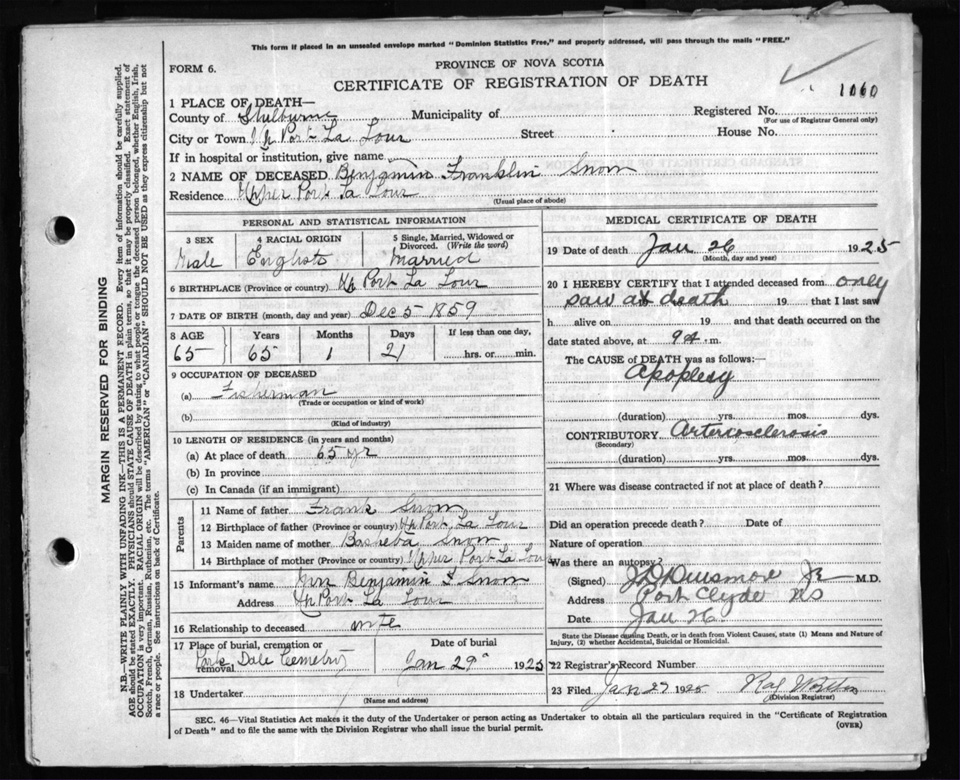 This form if placed in an unsealed envelope marked "Dominion Statistics Free," and properly addressed, will pass through the mails "FREE."
FORM 6.
PROVINCE OF NOVA SCOTIA
CERTIFICATE OF REGISTRATION OF DEATH
1060
1 PLACE OF DEATH—
County of Shelburne Municipality of Registered No.
(For use of Registrar General only)
City or Town Up Port La Tour Street House No.
If in hospital or institution, give name
2 NAME OF DECEASED Benjamin Franklin Snow
Residence Upper Port La Tour
(Usual place of abode)
PERSONAL AND STATISTICAL INFORMATION
3 SEX 4 RACIAL ORIGIN 5 Single, Married, Widowed or Divorced. (Write the word)
Male English Married
6 BIRTHPLACE (Province or country) Up Port La Tour
7 DATE OF BIRTH (month, day and year) Dec 5 1859
8 AGE Years Months Days If less than one day,
65 65 1 21 hrs. or min.
9 OCCUPATION OF DECEASED
(a) Fisherman
(Trade or occupation or kind of work)
(b)
(Kind of industry)
10 LENGTH OF RESIDENCE (in years and months)
(a) At place of death 65 yr
(b) In province
(c) In Canada (if an immigrant)
Parents
11 Name of father Frank Snow
12 Birthplace of father (Province or country) Up Port La Tour
13 Maiden name of mother Basheba Snow
14 Birthplace of mother (Province or country) Upper Port La Tour
15 Informant's name Benjamin F Snow
Address Up Port La Tour
16 Relationship to deceased wife
17 Place of burial, cremation or removal Date of burial
Dale Cemetery Jan 29 1925
18 Undertaker
(Name and address)
MEDICAL CERTIFICATE OF DEATH
19 Date of death Jan 26 1925
(Month, day and year)
20 I HEREBY CERTIFY that I attended deceased from only
saw at death 19 that I last saw
h alive on 19 and that death occurred on the
date stated above, at 9 m.
The CAUSE of DEATH was as follows:—
Apoplexy
(duration) yrs. mos. dys.
CONTRIBUTORY Arteriosclerosis
(Secondary)
(duration) yrs. mos. dys.
21 Where was disease contracted if not at place of death?
Did an operation precede death? Date of
Nature of operation
Was there an autopsy?
(Signed) Jr M.D.
Address Port Clyde NS
Date Jan 26
State the Disease causing Death, or in death from Violent Causes, state (1) Means and Nature of
Injury, (2) whether Accidental, Suicidal or Homicidal.
22 Registrar's Record Number
23 Filed Jan 27 1925
(Division Registrar)
SEC. 46—Vital Statistics Act makes it the duty of the Undertaker or person acting as Undertaker to obtain all the particulars required in the "Certificate of Registration
of Death" and to file the same with the Division Registrar who shall issue the burial permit.
(OVER)
MARGIN RESERVED FOR BINDING
N.B.—WRITE PLAINLY WITH UNFADING INK—THIS IS A PERMANENT RECORD. Every item of information should be carefully supplied.
AGE should be stated EXACTLY. PHYSICIANS should STATE CAUSE OF DEATH in plain terms, so that it may be properly classified. Exact statement of
OCCUPATION is very important. RACIAL ORIGIN will be described by stating to what people or tongue the deceased person belonged, whether English, Irish,
Scotch, French, German, Russian, Ruthenian, etc. The terms "AMERICAN" or "CANADIAN" SHOULD NOT BE USED as they express citizenship but not
a race or people. See instructions on back of Certificate.